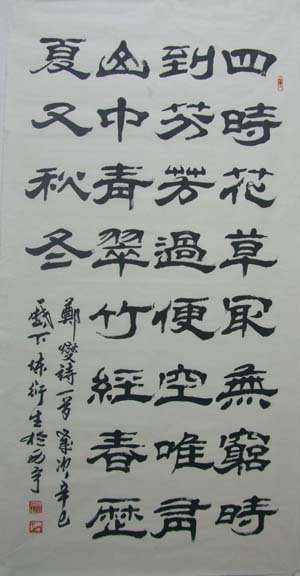 四時花草最無窮時
到芬芳過便空唯有
山中青翠竹經春歷
夏又秋冬
鄭燮詩一首歲次辛巳
衍生於